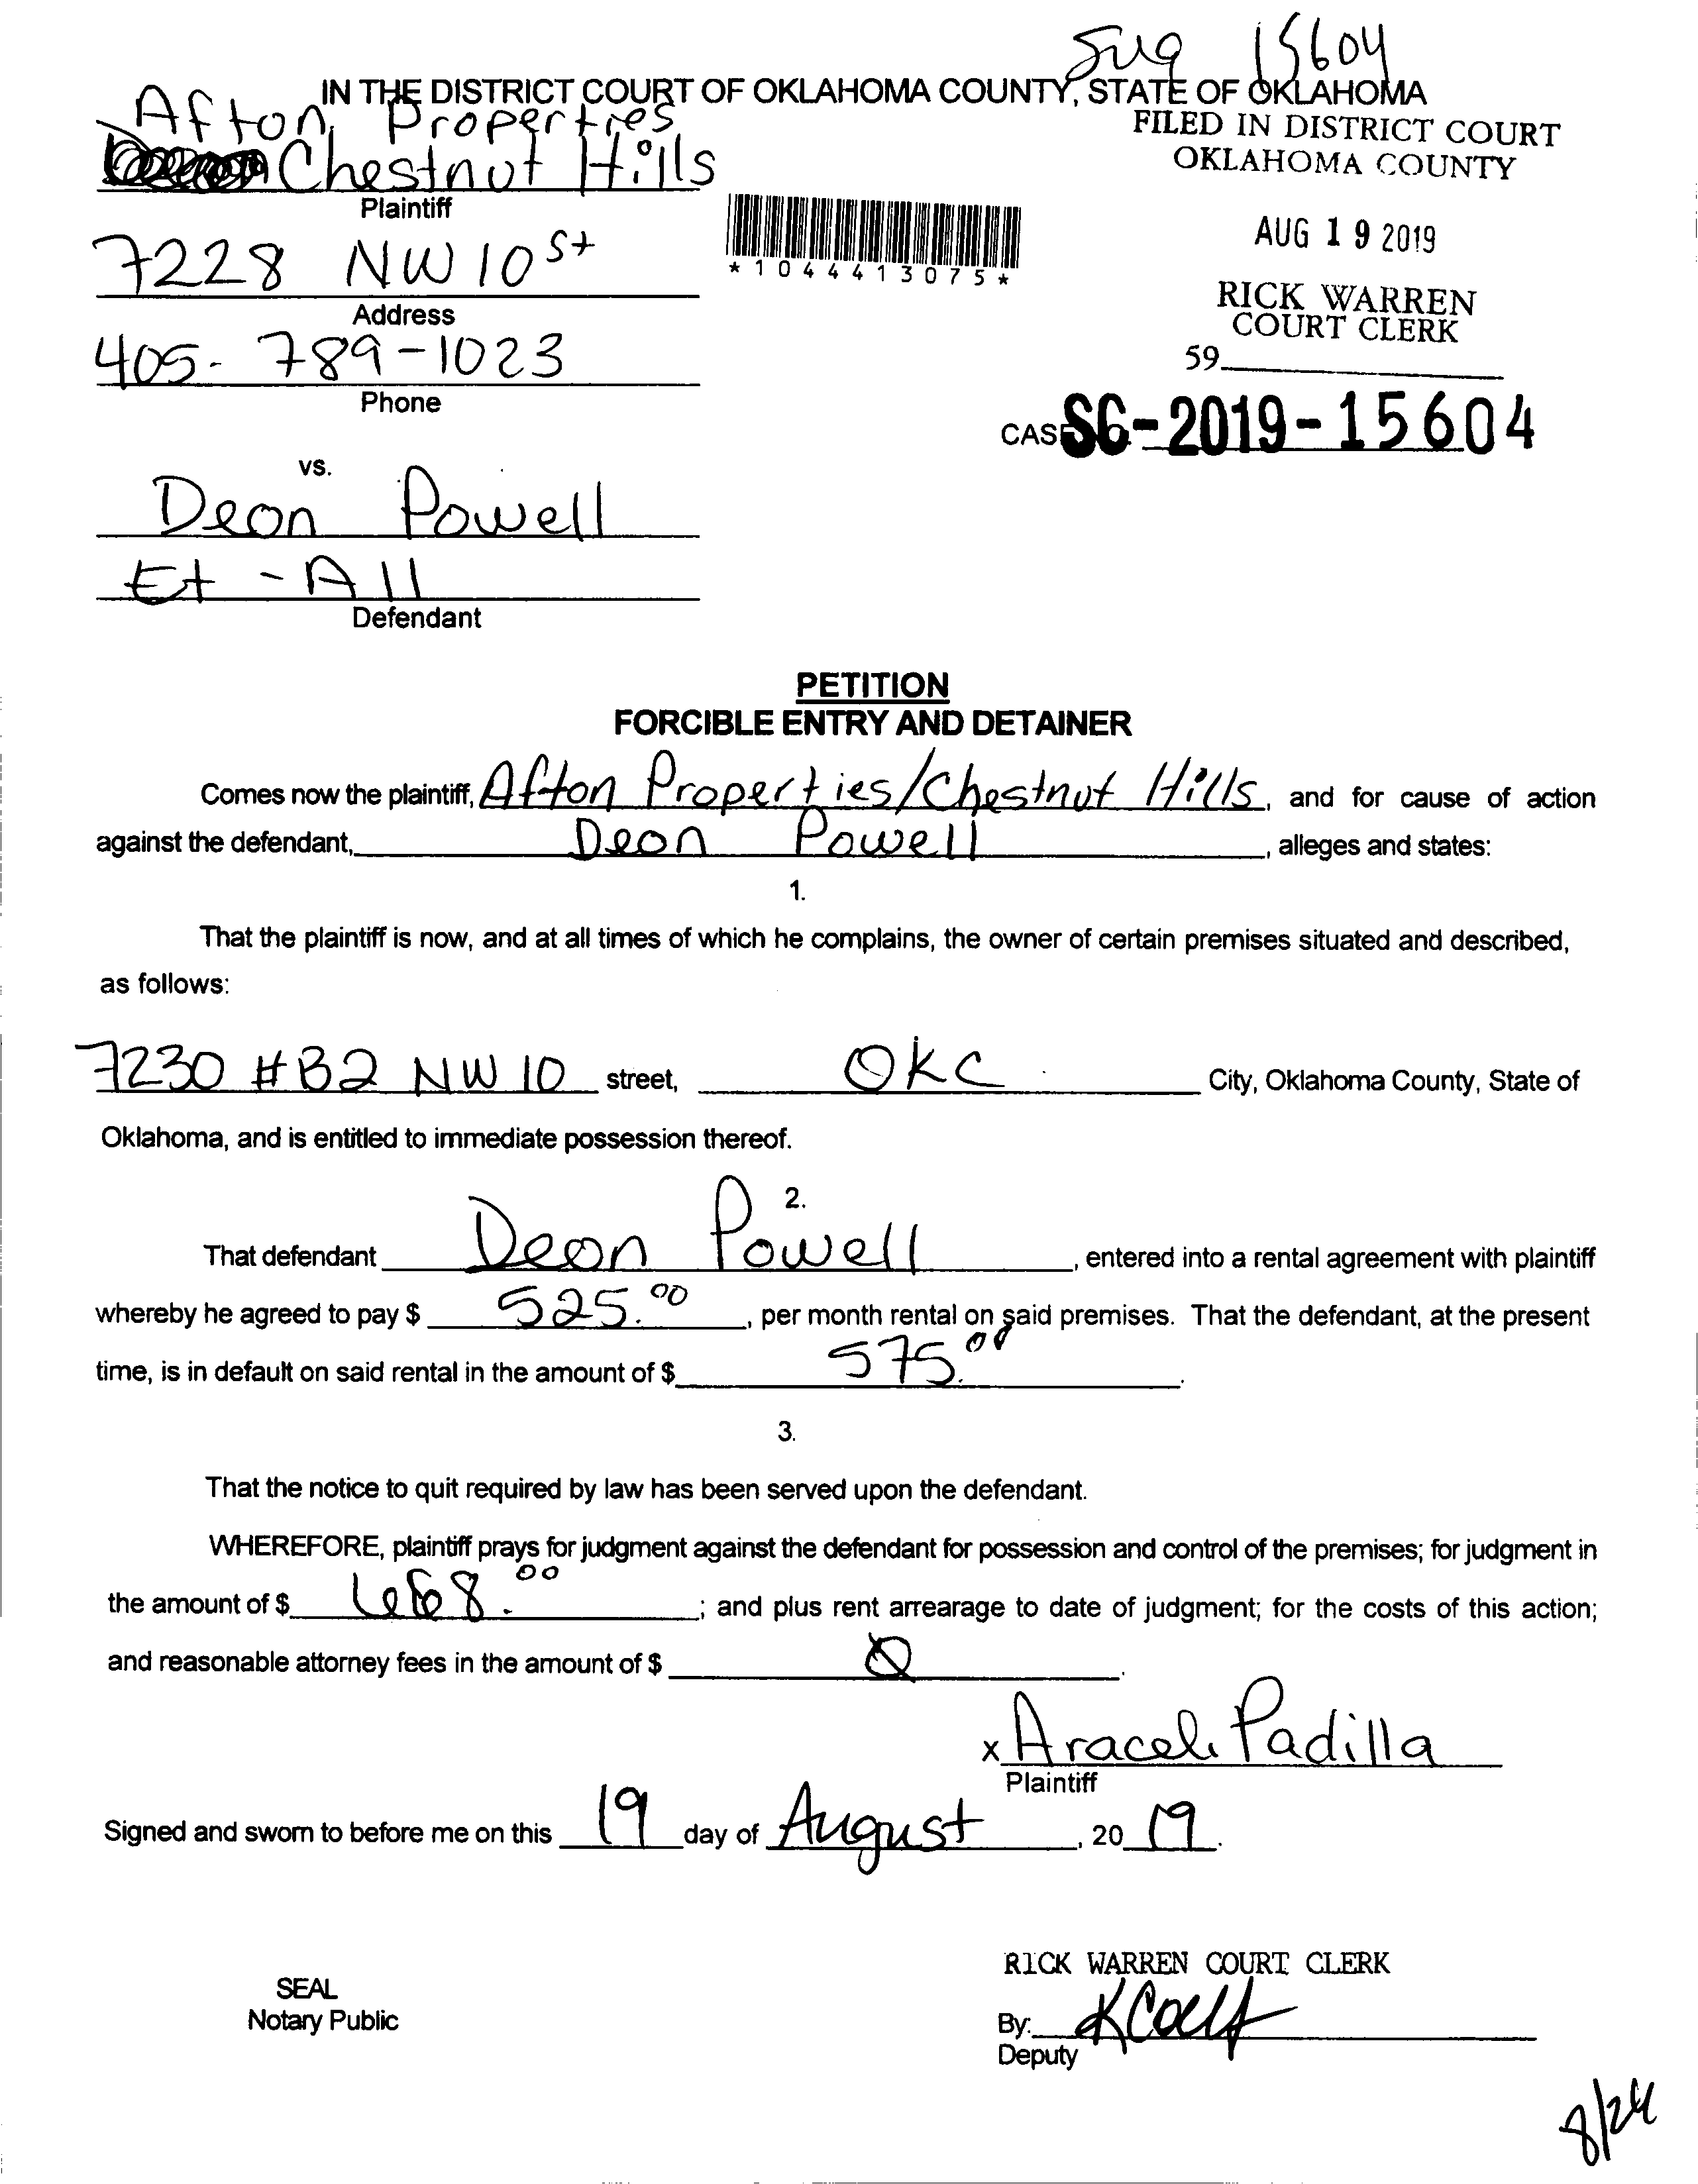 Sug 15604
IN THE DISTRICT COURT OF OKLAHOMA COUNTY, STATE OF OKLAHOMA
Afton Properties
Chestnut Hills
Plaintiff
FILED IN DISTRICT COURT
OKLAHOMA COUNTY
7228 NW 10 St
Address
*1044413075*
AUG 19 2019
RICK WARREN
COURT CLERK
405-789-1023
Phone
59
CASE SC-2019-15604
vs.
Deon Powell
Et-All
Defendant
PETITION
FORCIBLE ENTRY AND DETAINER
Comes now the plaintiff, Afton Properties/Chestnut Hills, and for cause of action
against the defendant, Deon Powell, alleges and states:
1.
That the plaintiff is now, and at all times of which he complains, the owner of certain premises situated and described,
as follows:
7230 #B2 NW 10 street, OKC City, Oklahoma County, State of
Oklahoma, and is entitled to immediate possession thereof.
2.
That defendant Deon Powell, entered into a rental agreement with plaintiff
whereby he agreed to pay $ 525.00, per month rental on said premises. That the defendant, at the present
time, is in default on said rental in the amount of $ 575.00.
3.
That the notice to quit required by law has been served upon the defendant.
WHEREFORE, plaintiff prays for judgment against the defendant for possession and control of the premises; for judgment in
the amount of $ 668.00; and plus rent arrearage to date of judgment; for the costs of this action;
and reasonable attorney fees in the amount of $ 0.
x Araceli Padilla
Plaintiff
Signed and sworn to before me on this 19 day of August, 2019.
RICK WARREN COURT CLERK
SEAL
Notary Public
By:
Deputy